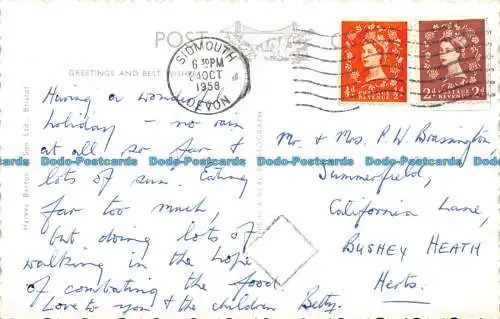 POST
GREETINGS AND BEST WISHES
SIDMOUTH
6 30PM
OCT
1958
DEVON
½d POSTAGE REVENUE ½d
2d POSTAGE REVENUE 2d
Harvey Barton & Son Ltd. Bristol
Having a wonderful
holiday – no rain
at all so far &
lots of sun. Eating
far too much,
but doing lots of
walking in the hope
of combating the food.
Love to you & the children Betty.
Mr. & Mrs. P. W. Brassington,
Summerfield,
California Lane,
BUSHEY HEATH
Herts.
Dodo-Postcards Dodo-Postcards Dodo-Postcards Dodo-Postcards Dodo-Postcards